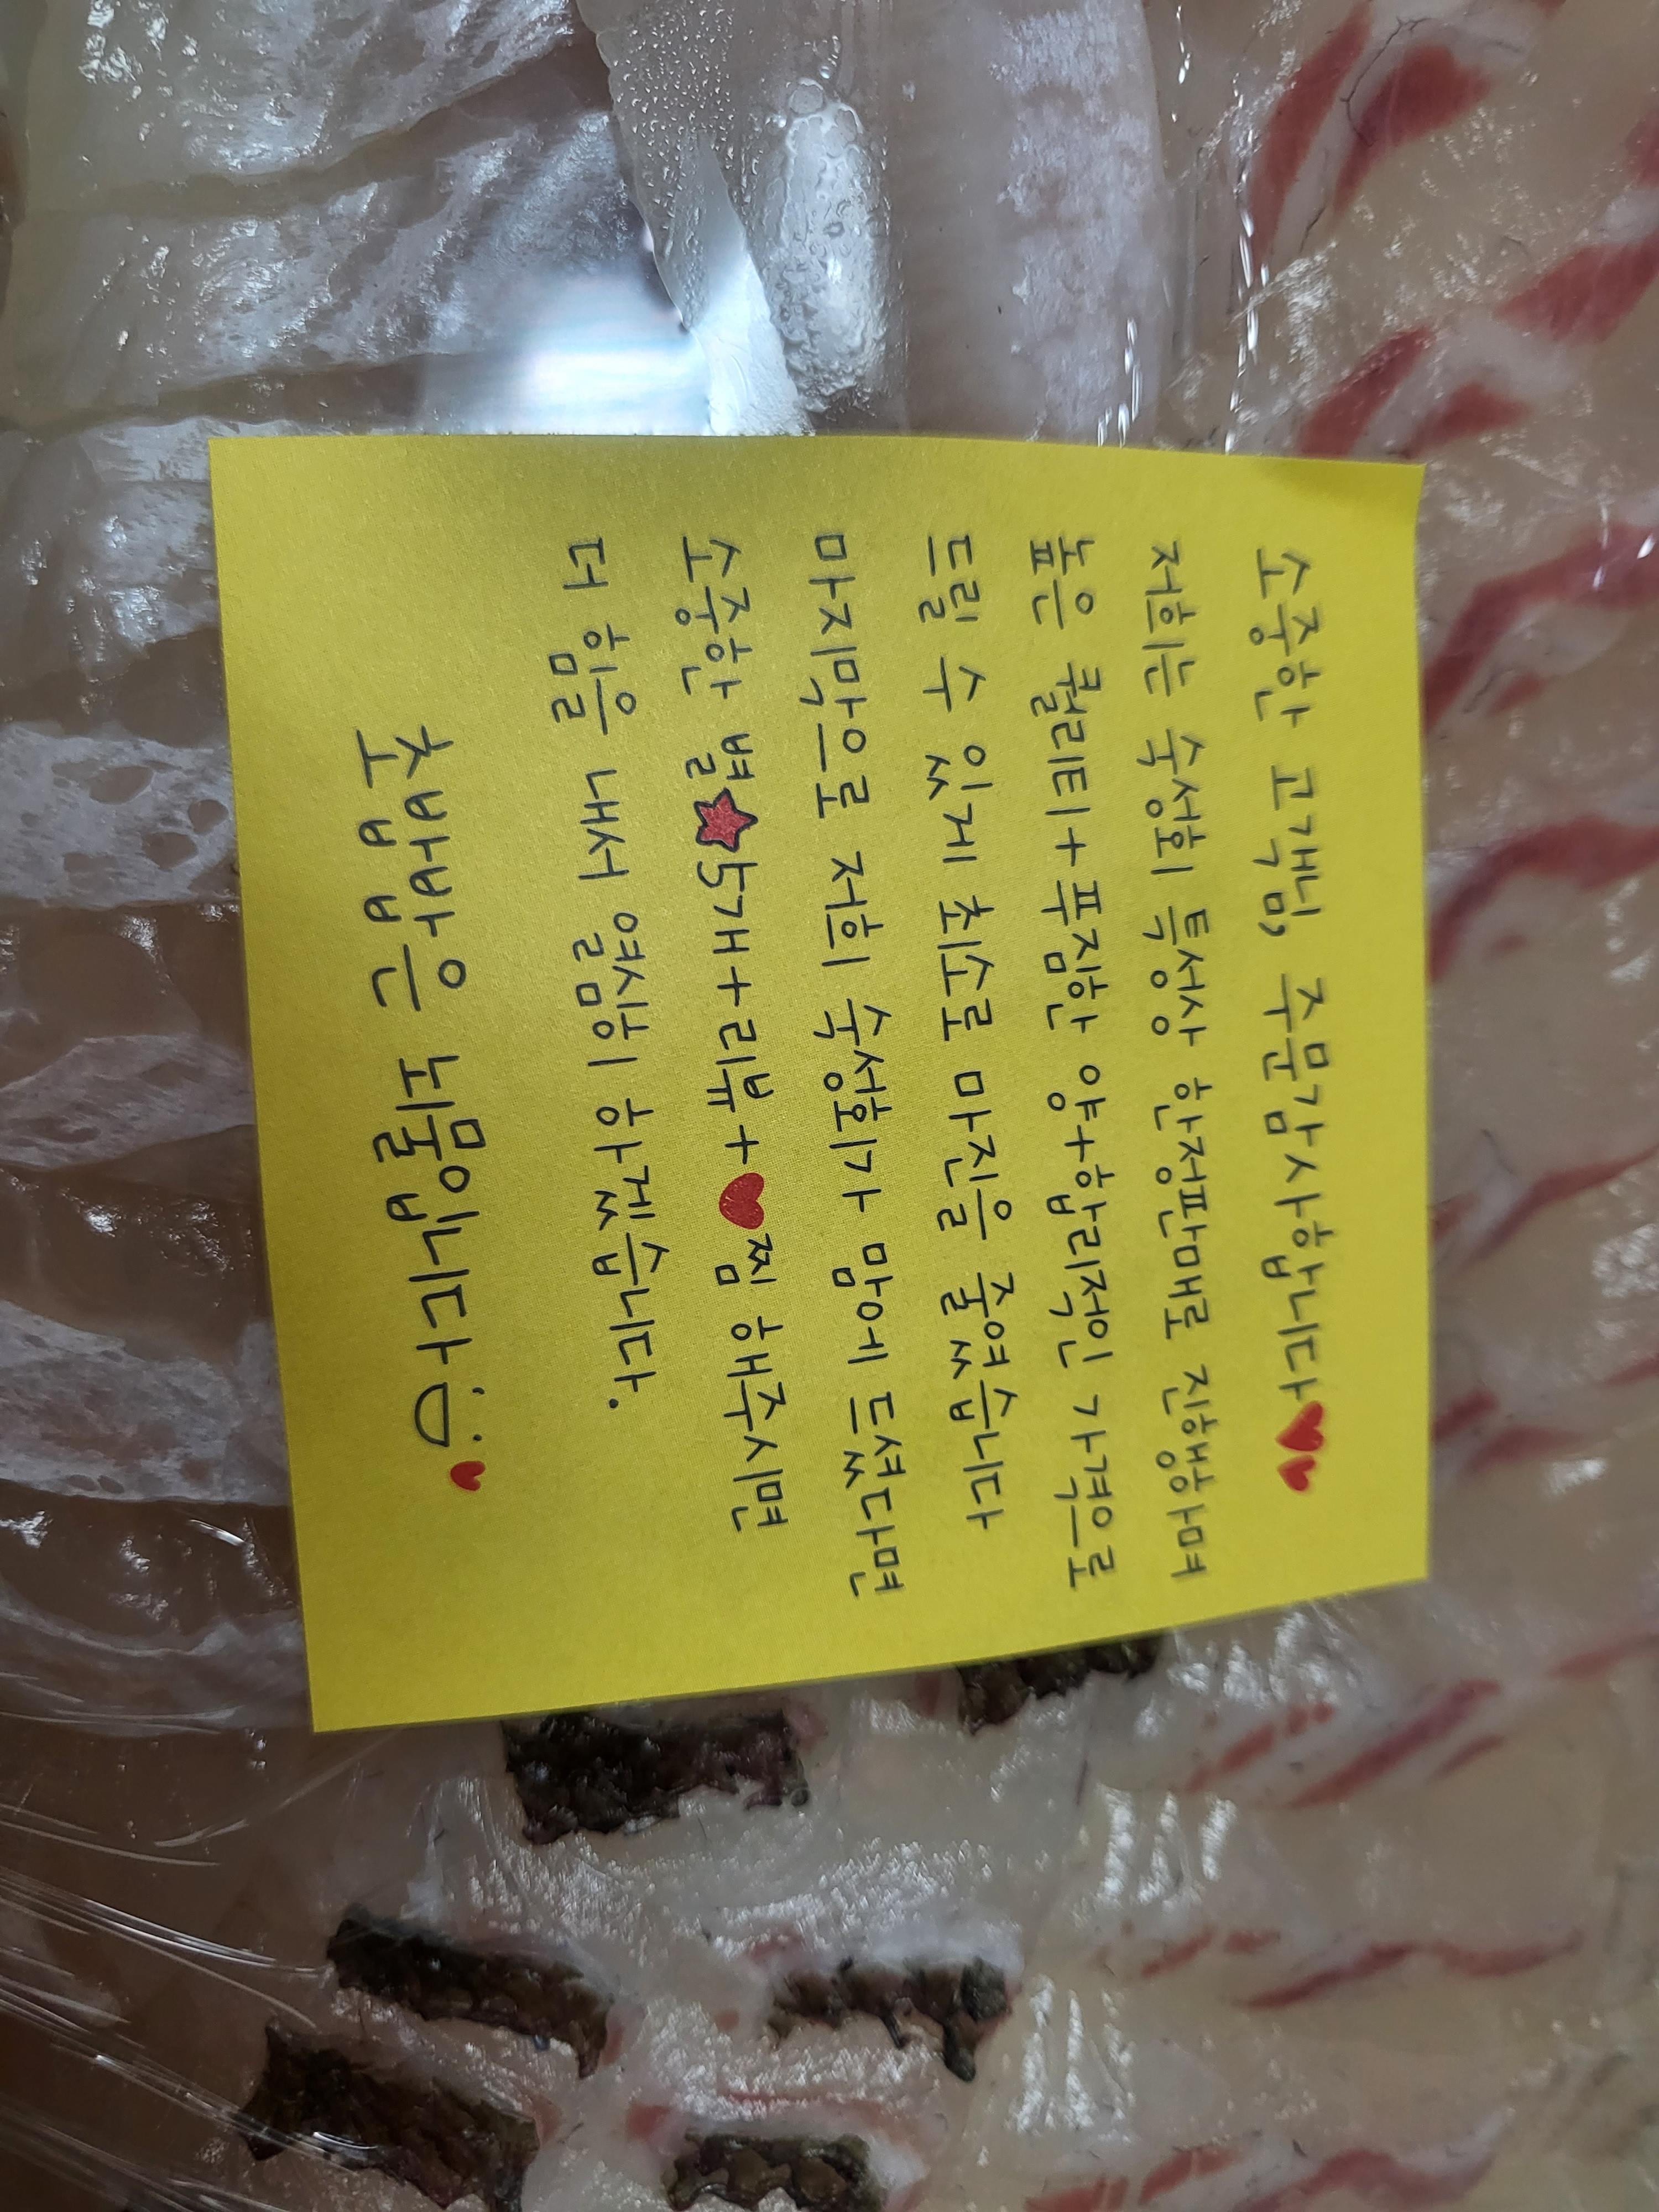 소중한 고객님, 주문감사합니다♥♥
저희는 숙성회 특성상 한정판매로 진행하며
높은 퀄리티+푸짐한 양+합리적인 가격으로
드릴 수 있게 최소로 마진을 줄였습니다
마지막으로 저희 숙성회가 맘에 드셨다면
소중한 별★5개+리뷰+♥찜 해주시면
더 힘을 내서 열심히 하겠습니다.
초빱빵은 뇌물입니다 ♥